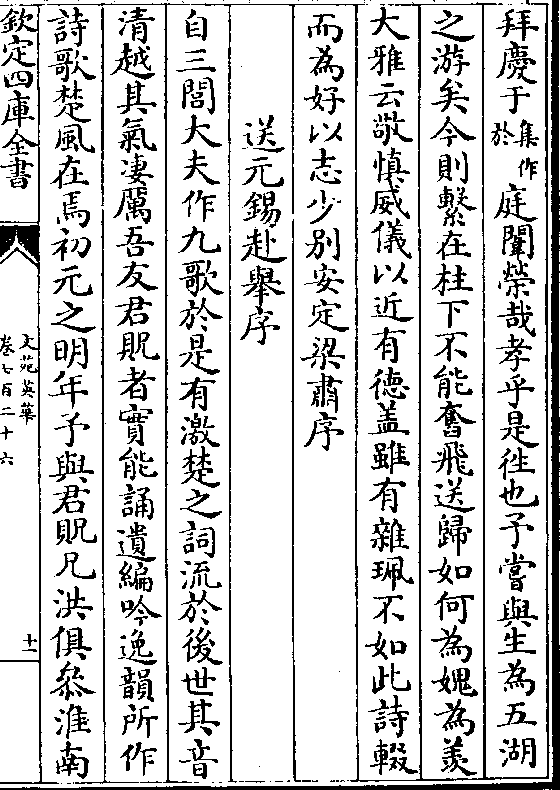 拜慶于集作於庭闈榮哉孝乎是往也予嘗與生為五湖
之游矣今則繫在柱下不能奮飛送歸如何為媿為羨
大雅云敬慎威儀以近有德蓋雖有雜珮不如此詩輟
而為好以志少別安定梁肅序
送元錫赴舉序
自三閭大夫作九歌於是有激楚之詞流於後世其音
清越其氣凄厲吾友君貺者實能誦遺編吟逸韻所作
詩歌楚風在焉初元之明年予與君貺兄洪俱參淮南
欽定四庫全書
文苑英華
卷七百二十六
十一